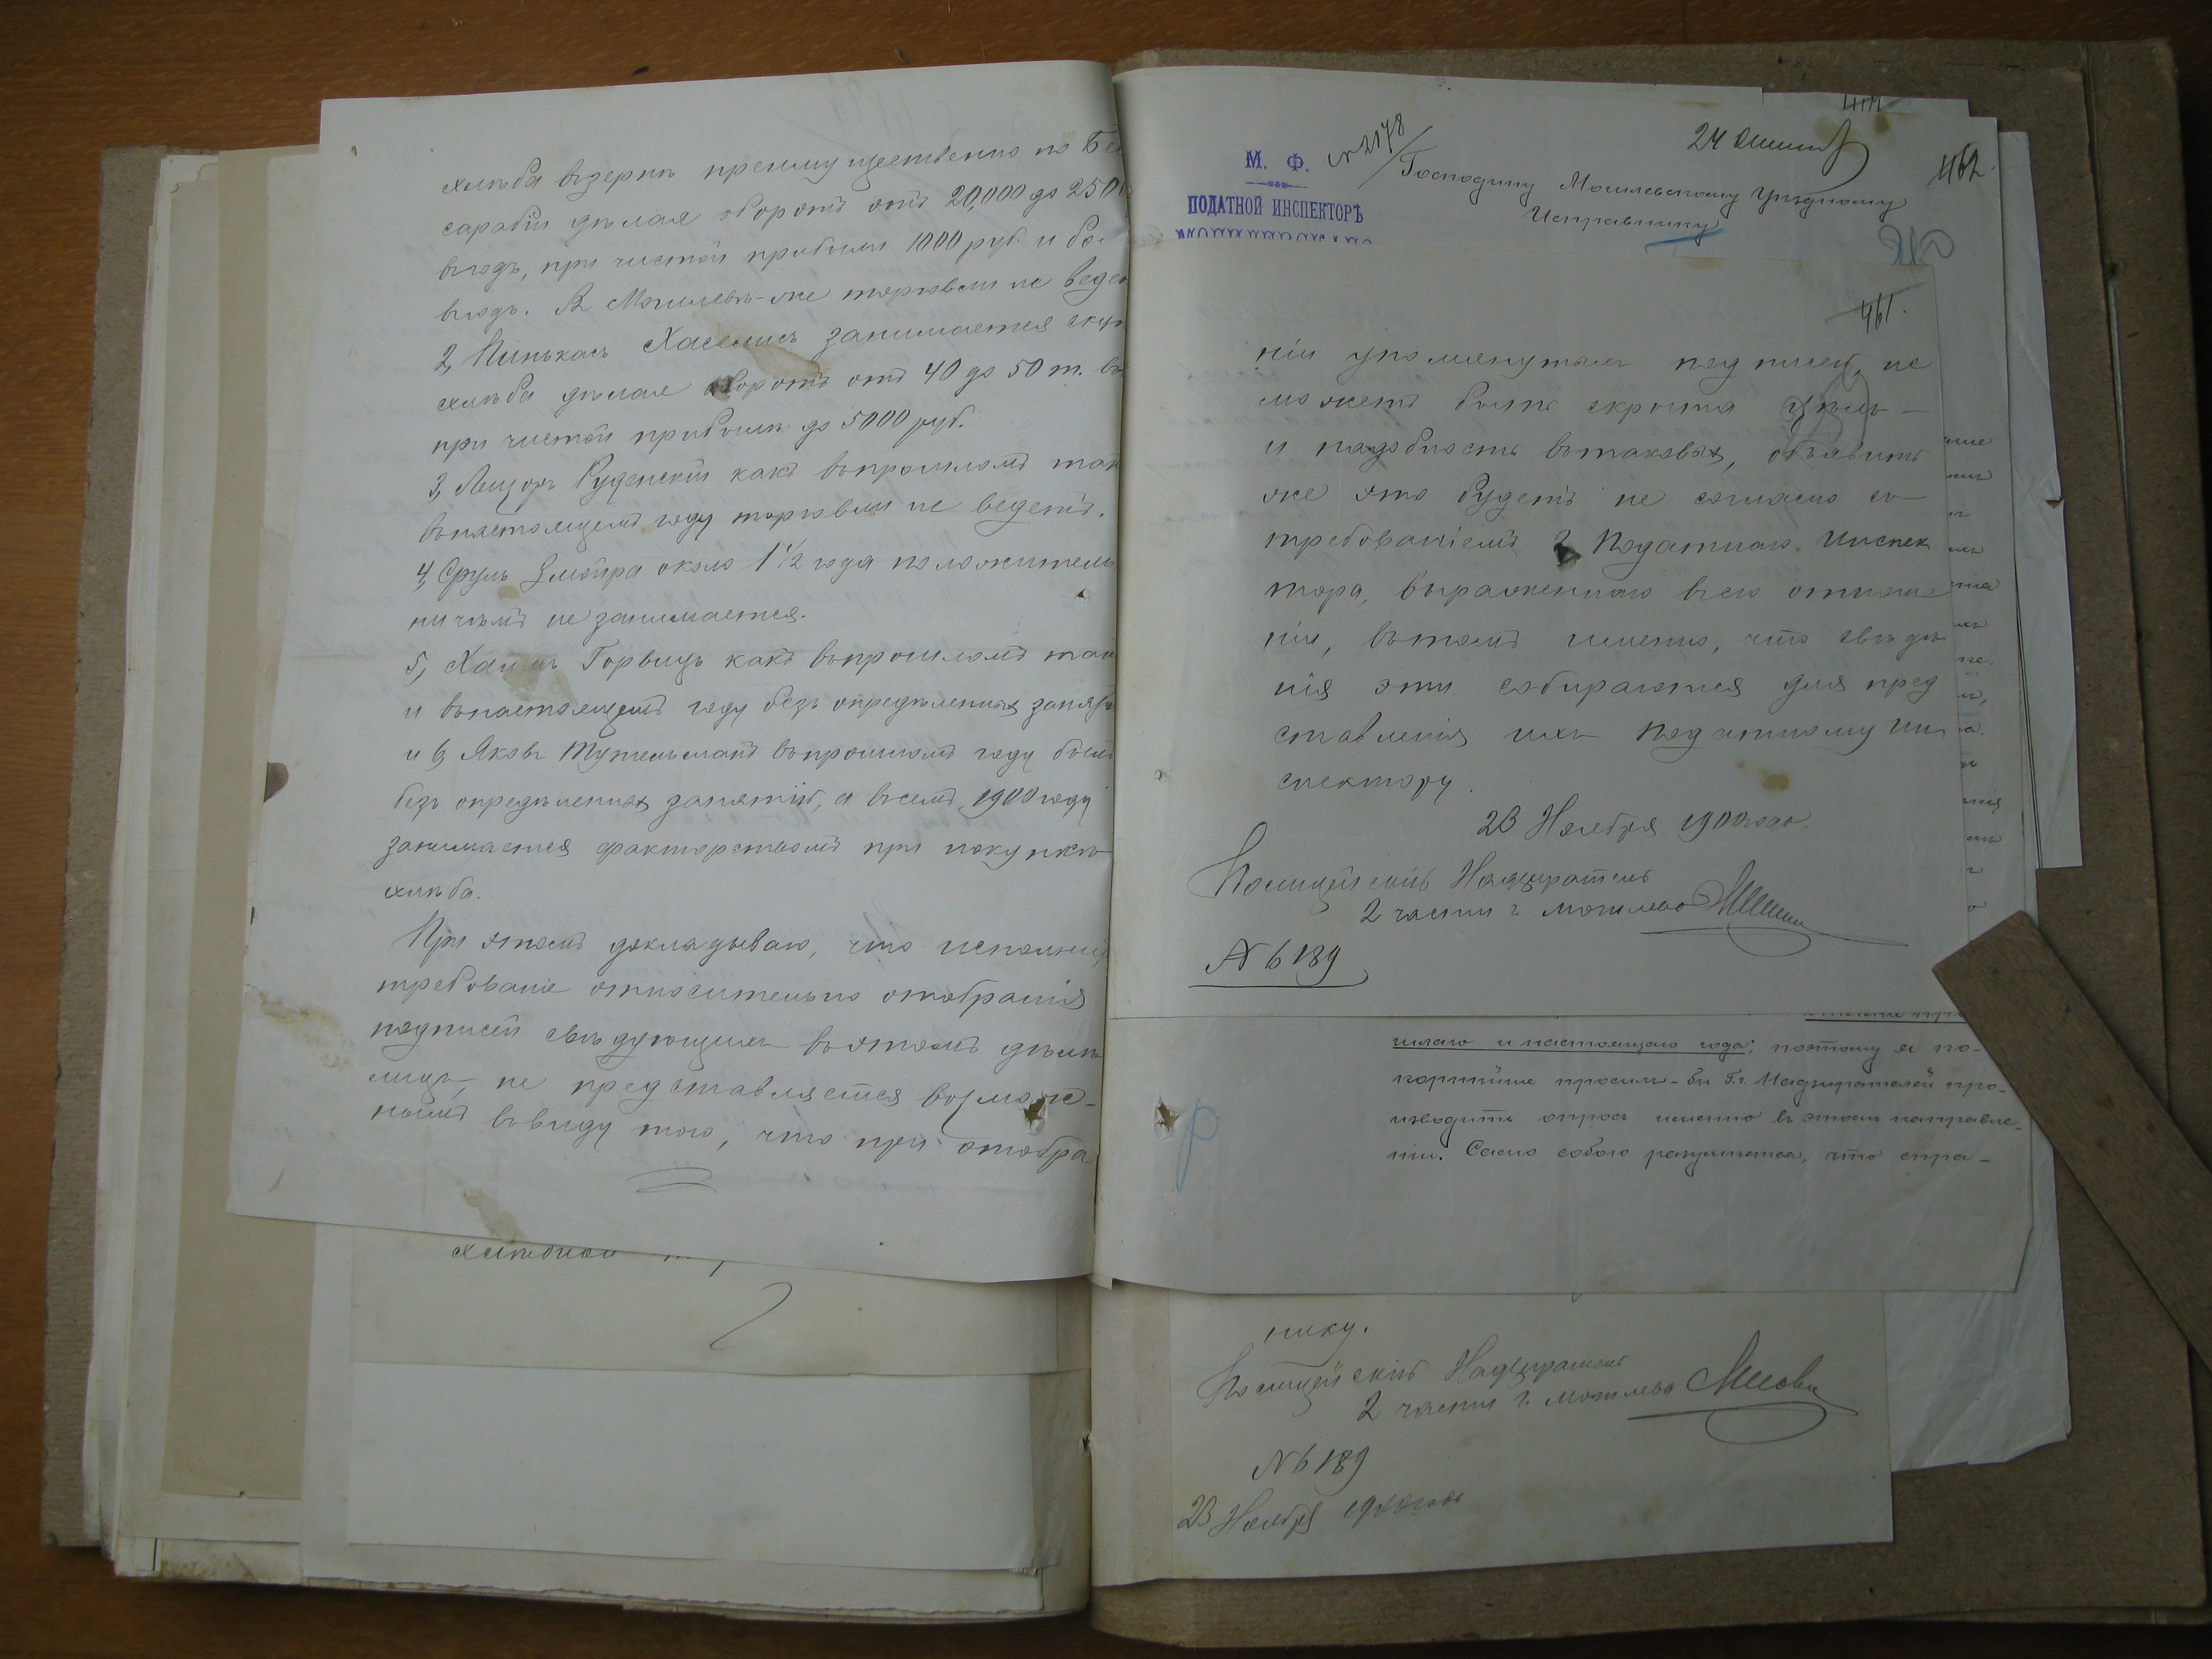 хлѣба взернѣ преимущественно по Бес
сарабіи дѣлая оборотъ отъ 20,000 до 250
вгодъ, при чистой прибыли 1000 руб. и бо
вгодъ. В Могилевѣ-же торговли не веде
2, Пинькасъ Хаселисъ занимается скуп
хлѣба дѣлая оборотъ отъ 40 до 50 т. в
при чистой прибыли до 5000 руб.
3, Лейзоръ Руденскій какъ впрошломъ так
внастоящемъ году торговли не ведетъ.
4, Сруль Шмойра около 1 1/2 года положитель
ничѣмъ не занимается.
5, Хаимъ Горвицъ какъ впрошломъ так
и внастоящемъ году безъ опредѣленныхъ заняті
и 6, Яковъ Тутельманъ впрошломъ году былъ
безъ опредѣленныхъ занятій, а всемъ 1900 году
занимается факторствомъ при покупкѣ
хлѣба.
При этомъ докладываю, что исполнить
требованіе относительно отобранія
подписей свѣдующихъ вэтомъ дѣлѣ
лицъ, не представляется возмож-
нымъ ввиду того, что при отобра
хлѣбной
М. Ф.
№ 2178
ПОДАТНОЙ ИНСПЕКТОРЪ
24
Господину Могилевскому Уѣздному
Исправнику
462.
461.
ніи упомянутыхъ подписей, не
можетъ быть скрыта цѣль
и надобность втаковыхъ, объявить
же это будетъ не согласно съ
требованіемъ г. Податнаго Инспек
тора, выраженнаго всего отноше
ніи, втомъ именно, что свѣдѣ
нія эти собираются для пред
ставленія ихъ Податному Ин
спектору.
23 Ноября 1900 года.
Полицейскій Надзиратель
2 части г. Могилева
№ 6189
шлаго и настоящаго года; поэтому я по-
корнѣйше просилъ-бы Гг. Надзирателей про-
изводить опросъ именно въ этомъ направле-
ніи. Само собою разумѣется, что спра-
нику.
Полицейскій Надзиратель
2 части г. Могилева
№ 6189
23 Ноября 1900 года